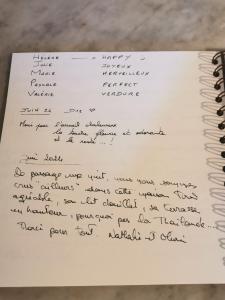 HELENE HAPPY
JULIE JOYEUX
MARIE MERVEILLEUX
PASCALE PERFECT
VALERIE VERDURE
JUIN 22
Merci pour l'accueil chaleureux
la tendre fleurie et
et le reste ... !
Juin 2022
De passage une nuit, nous nous
"ailleurs" dans cette maison
agréable, son lit douillet, sa terrasse
en hauteur, pourquoi pas la Thaïlande...
Merci pour tout. Nathalie et